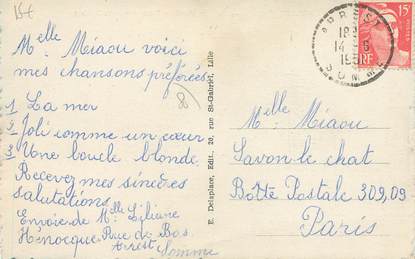 15f
Melle Miaou voici
mes chansons préférées
1 La mer
2 Joli comme un cœur
3 Une boucle blonde
Recevez mes sincères
salutations
Envoie de Mlle Liliane
Hénocque Rue de Bas
Arrest Somme
8
E. Delaplace, Edit., 20, rue St-Gabriel, Lille
15F
RF
ARREST
14 - 6
SOMME
Melle Miaou
Savon le chat
Boîte Postale 309,09
Paris